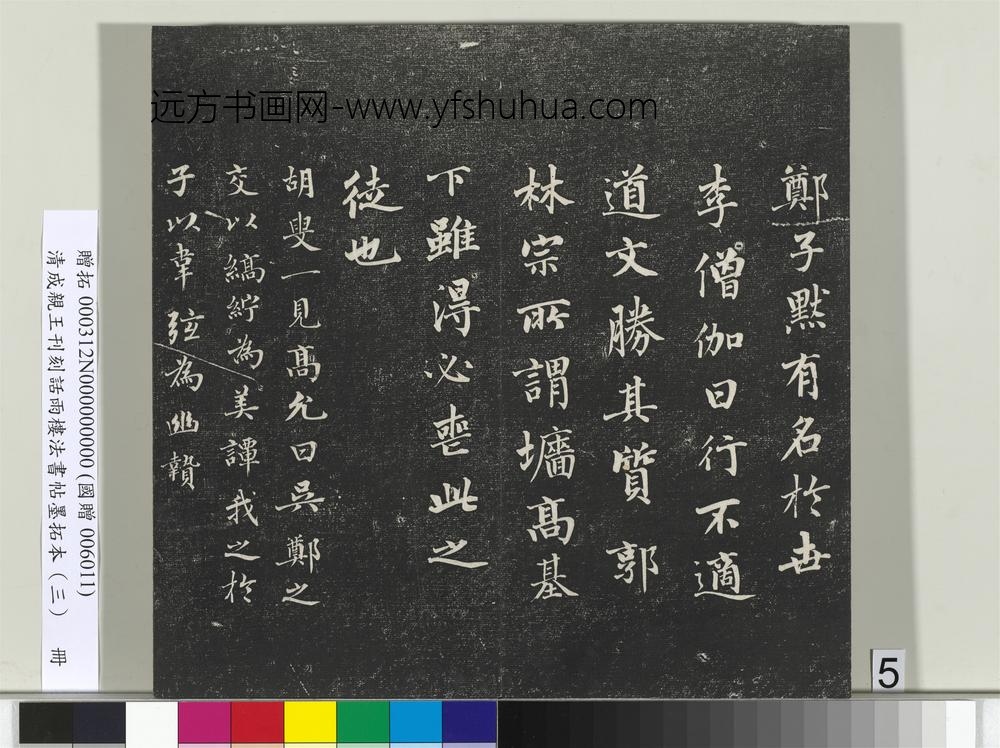 远方书画网-www.yfshuhua.com
鄭子默有名於世
李僧伽曰行不適
道文勝其質郭
林宗所謂墻高基
下雖得必喪此之
徒也
胡叟一見高允曰吳鄭之
交以縞紵為美譚我之於
子以韋弦為幽贄
贈拓 000312N000000000 (國贈 006011)
清成親王刊刻話雨樓法書帖墨拓本(三) 冊
5